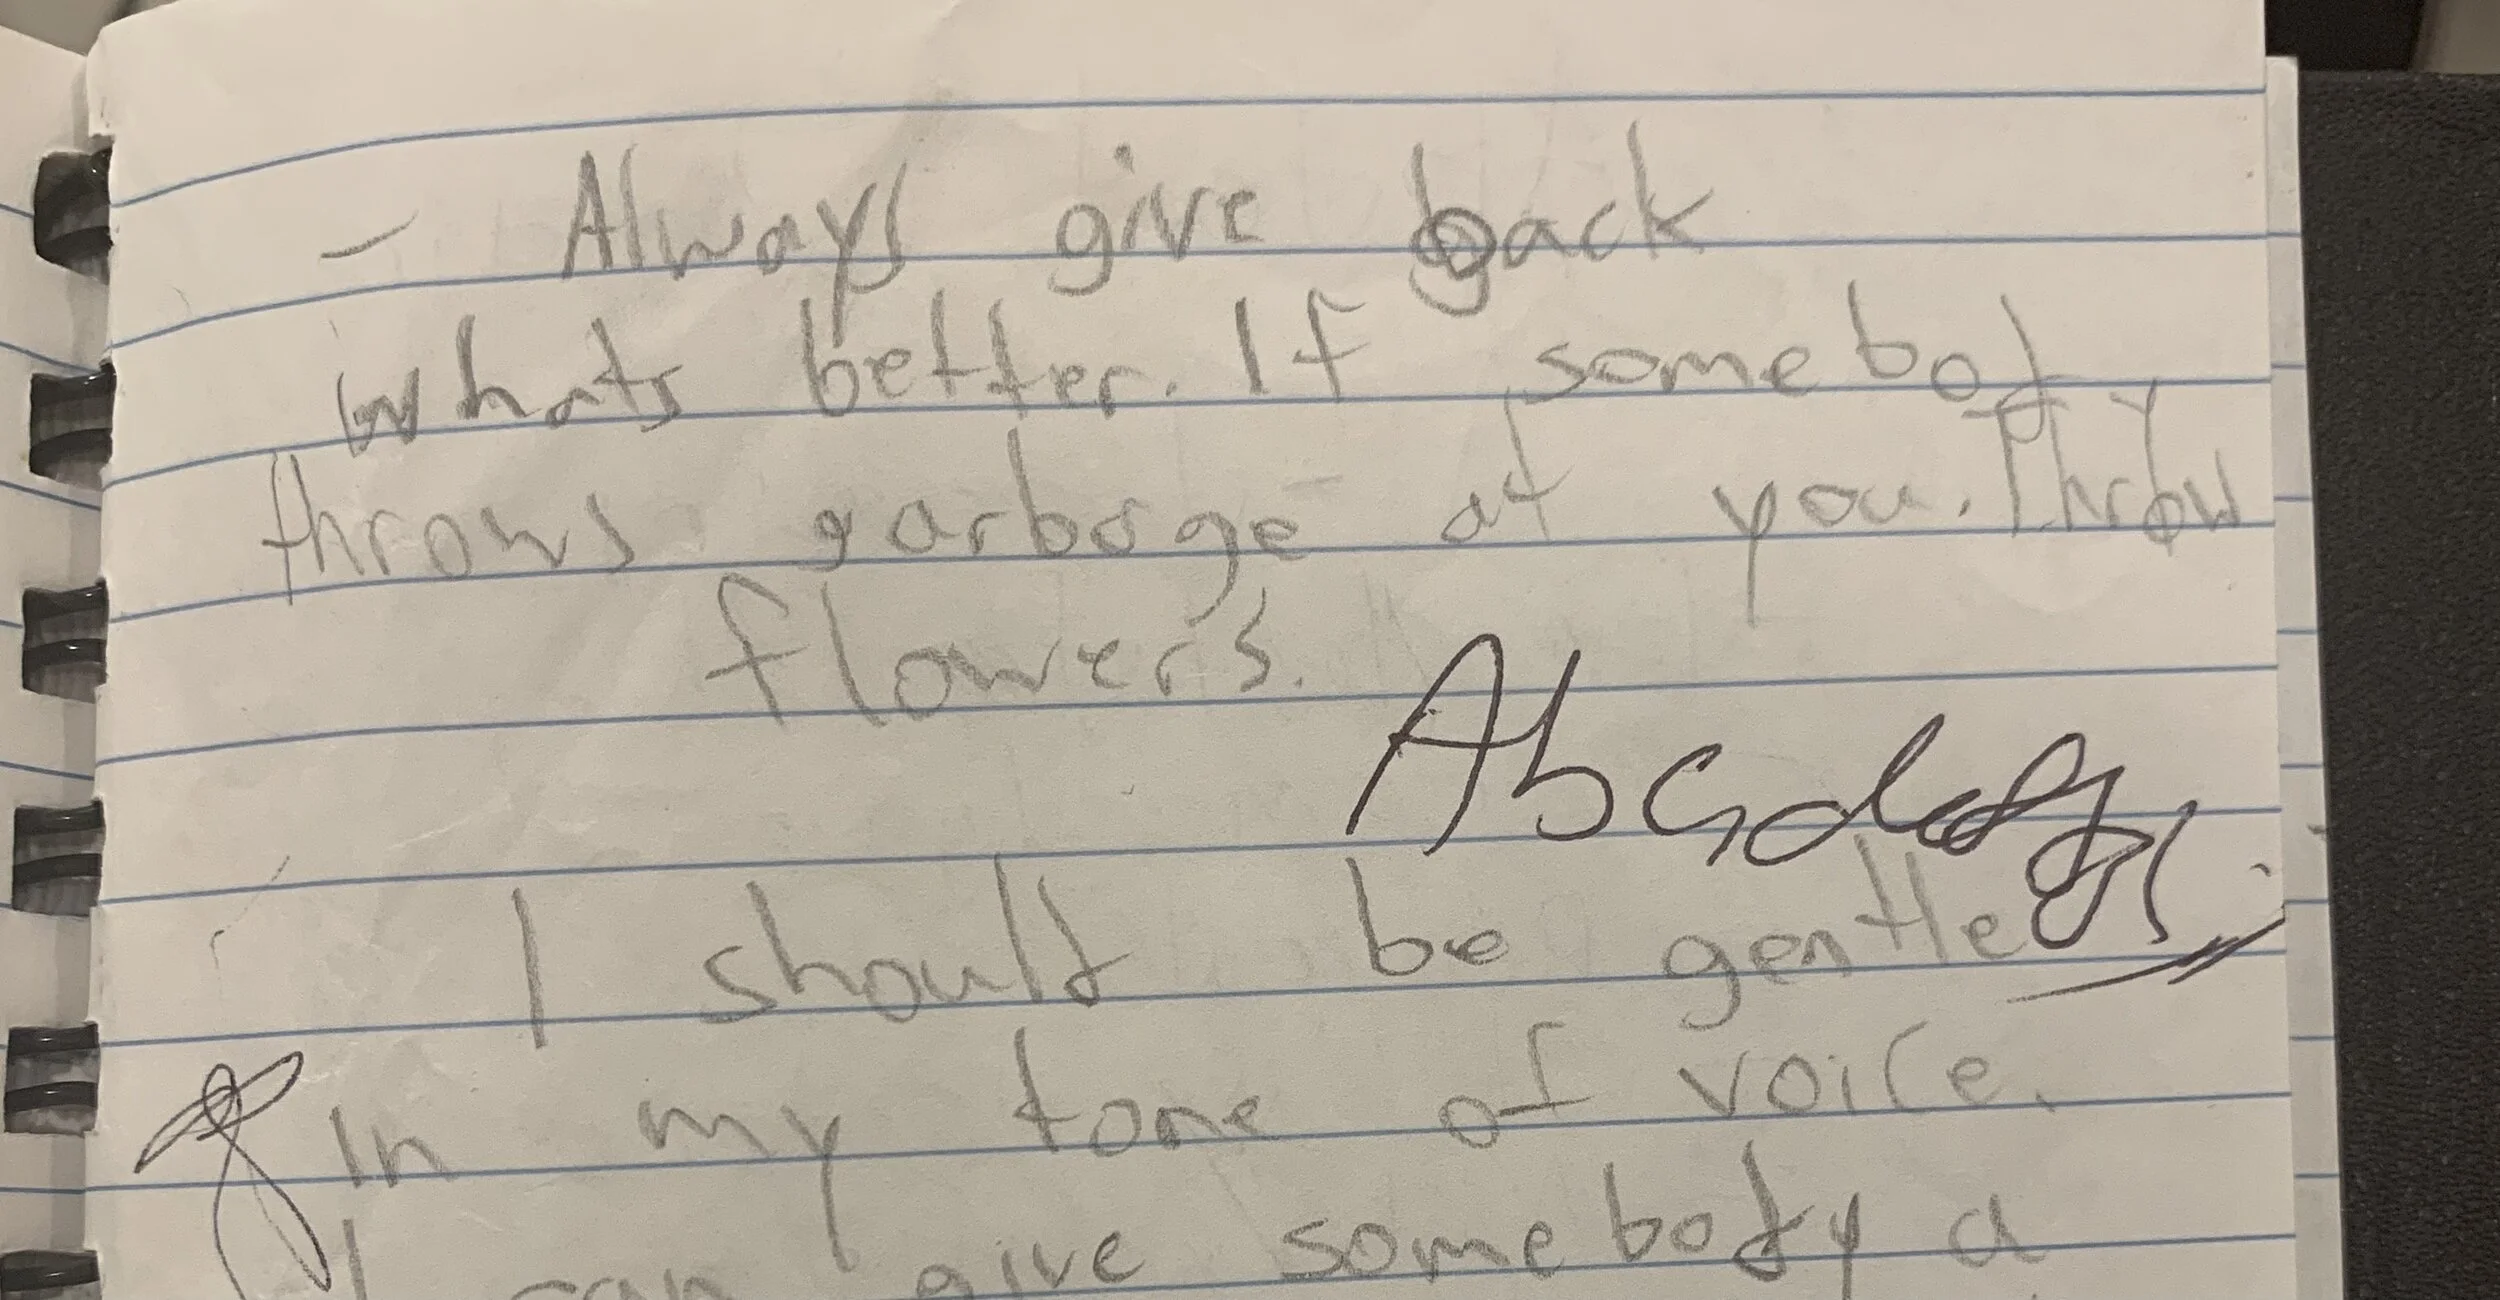 - Always give back
whats better. If somebody
throws garbage at you. Throw
flowers.
Abcdefg
I should be gentle
In my tone of voice.
I can give somebody a